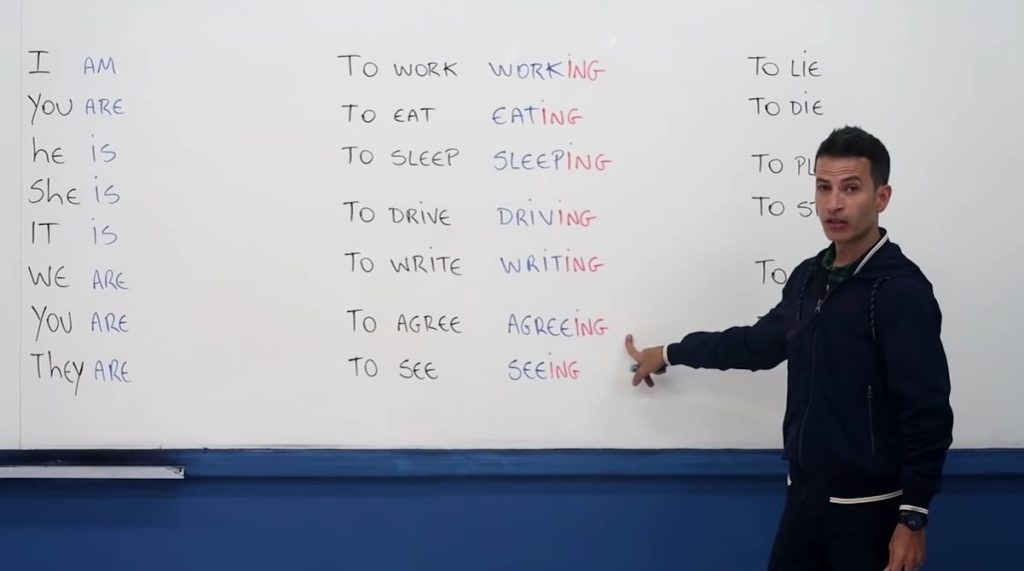 I AM
YOU ARE
he is
She is
IT is
WE ARE
YOU ARE
They ARE
TO WORK WORKING
TO EAT EATING
TO SLEEP SLEEPING
TO DRIVE DRIVING
TO WRITE WRITING
TO AGREE AGREEING
TO SEE SEEING
TO LIE
TO DIE
TO PL
TO ST
TO